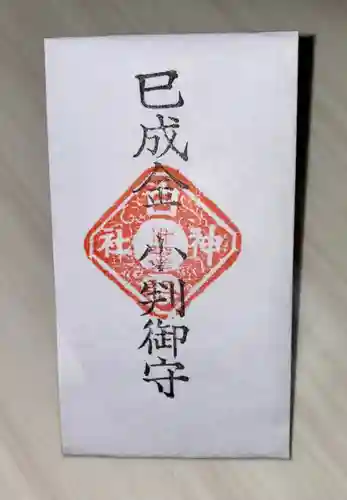 巳成金 小判御守
神
社